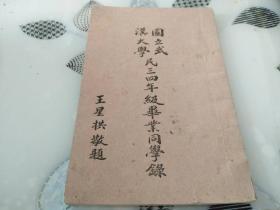 國立武
漢大學
民三四年級畢業同學錄
王星拱敬題